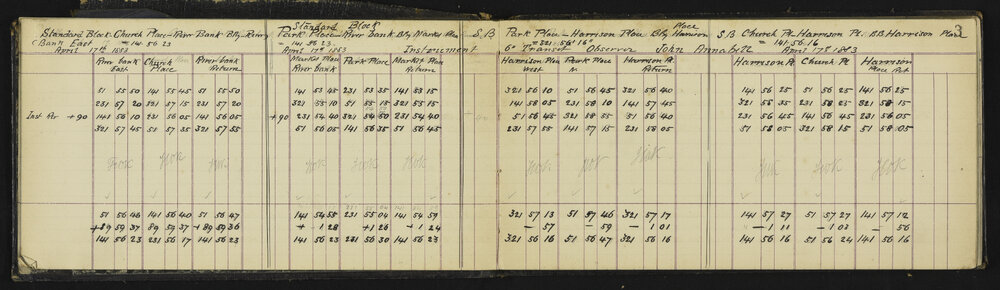 3
Standard Block. Church Place - River Bank Bdy - River
Bank East = 141 56 23
April 17th 1883
River bank East Church Place River bank Return
51 55 50 141 55 45 51 55 50
231 57 20 321 57 15 231 57 20
Inst Por +90 141 56 10 231 56 05 141 56 05
321 57 45 51 57 35 321 57 55
51 56 46 141 56 40 51 56 47
+89 59 37 89 59 37 +89 59 36
141 56 23 231 56 17 141 56 23
Standard Block
Park Place - River bank Bdy Market Place
= 141 56 23.
April 17th 1883 Instrument
Market Place River bank Park Place Market Place Return
141 53 45 231 53 35 141 53 15
321 55 10 51 55 15 321 55 15
+90 231 54 40 321 54 50 231 54 40
51 56 05 141 56 35 51 56 45
141 54 55 231 55 04 141 54 59
+ 1 28 +1 26 - 1 24
141 56 23 231 56 30 141 56 23
S.B Park Place - Harrison Place Bdy Harrison Place
= 321° 56' 16"
6" Transit Observer John Annabell
Harrison Place West Park Place N. Harrison Pl. Return
321 56 10 51 56 45 321 56 40
141 58 05 231 58 10 141 57 45
51 56 45 321 58 55 51 56 40
231 57 55 141 57 15 231 58 05
321 57 13 51 57 46 321 57 17
- 57 - 59 - 1 01
321 56 16 51 56 47 321 56 16
S B Church Pl. Harrison Pl: BB Harrison Place
= 141.56.16
April 17th 1883
Harrison Pl. Church Pl Harrison Place Ret
141 56 25 51 56 25 141 56 25
321 58 35 231 58 25 321 58 15
231 56 45 141 56 45 231 56 05
51 58 05 321 58 15 51 58 05
141 57 27 51 57 27 141 57 12
- 1 11 - 1 03 - 56
141 56 16 51 56 24 141 56 16